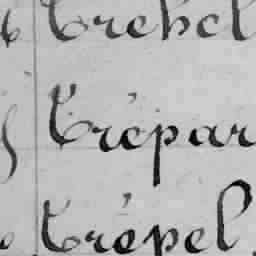 Trebel
Trépar
Trépel